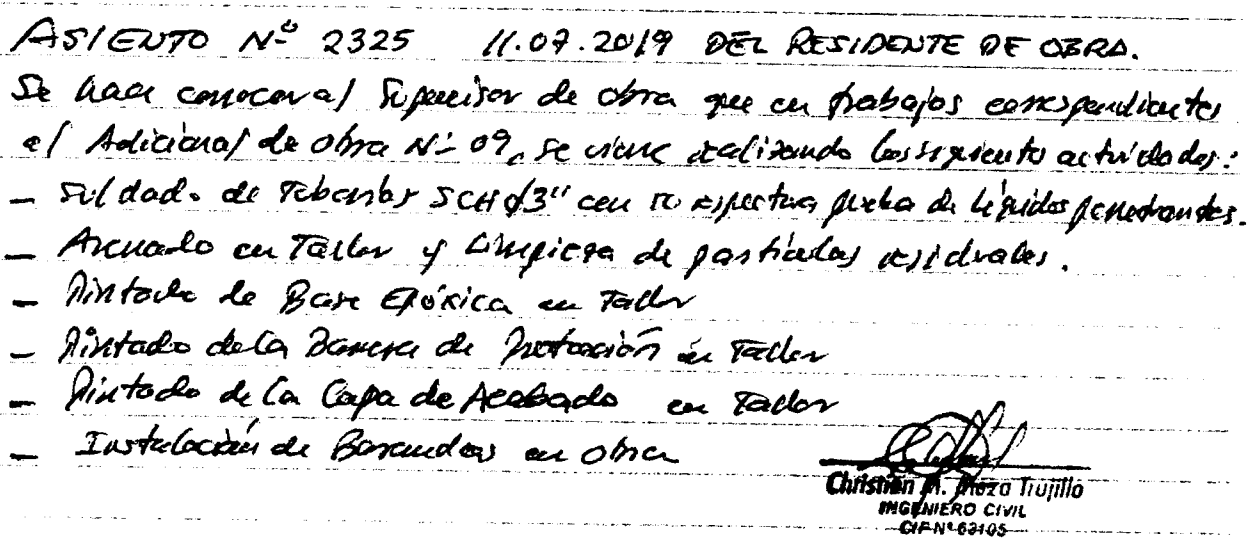 ASIENTO Nº 2325 11.07.2019 DEL RESIDENTE DE OBRA.
Se hace conocer al Supervisor de obra que en trabajos correspondientes
al Adicional de obra Nº 09, se viene realizando las siguientes actividades:
- Soldado de Tuberías SCH Ø3" con su respectiva prueba de Líquidos penetrantes.
- Arenado en Taller y Limpieza de partículas residuales.
- Pintado de Base Epóxica en Taller
- Pintado de la Barrera de Protección en Taller
- Pintado de la Capa de Acabado en Taller
- Instalación de Barandas en obra
Christian M. Meza Trujillo
INGENIERO CIVIL
CIP Nº 63105